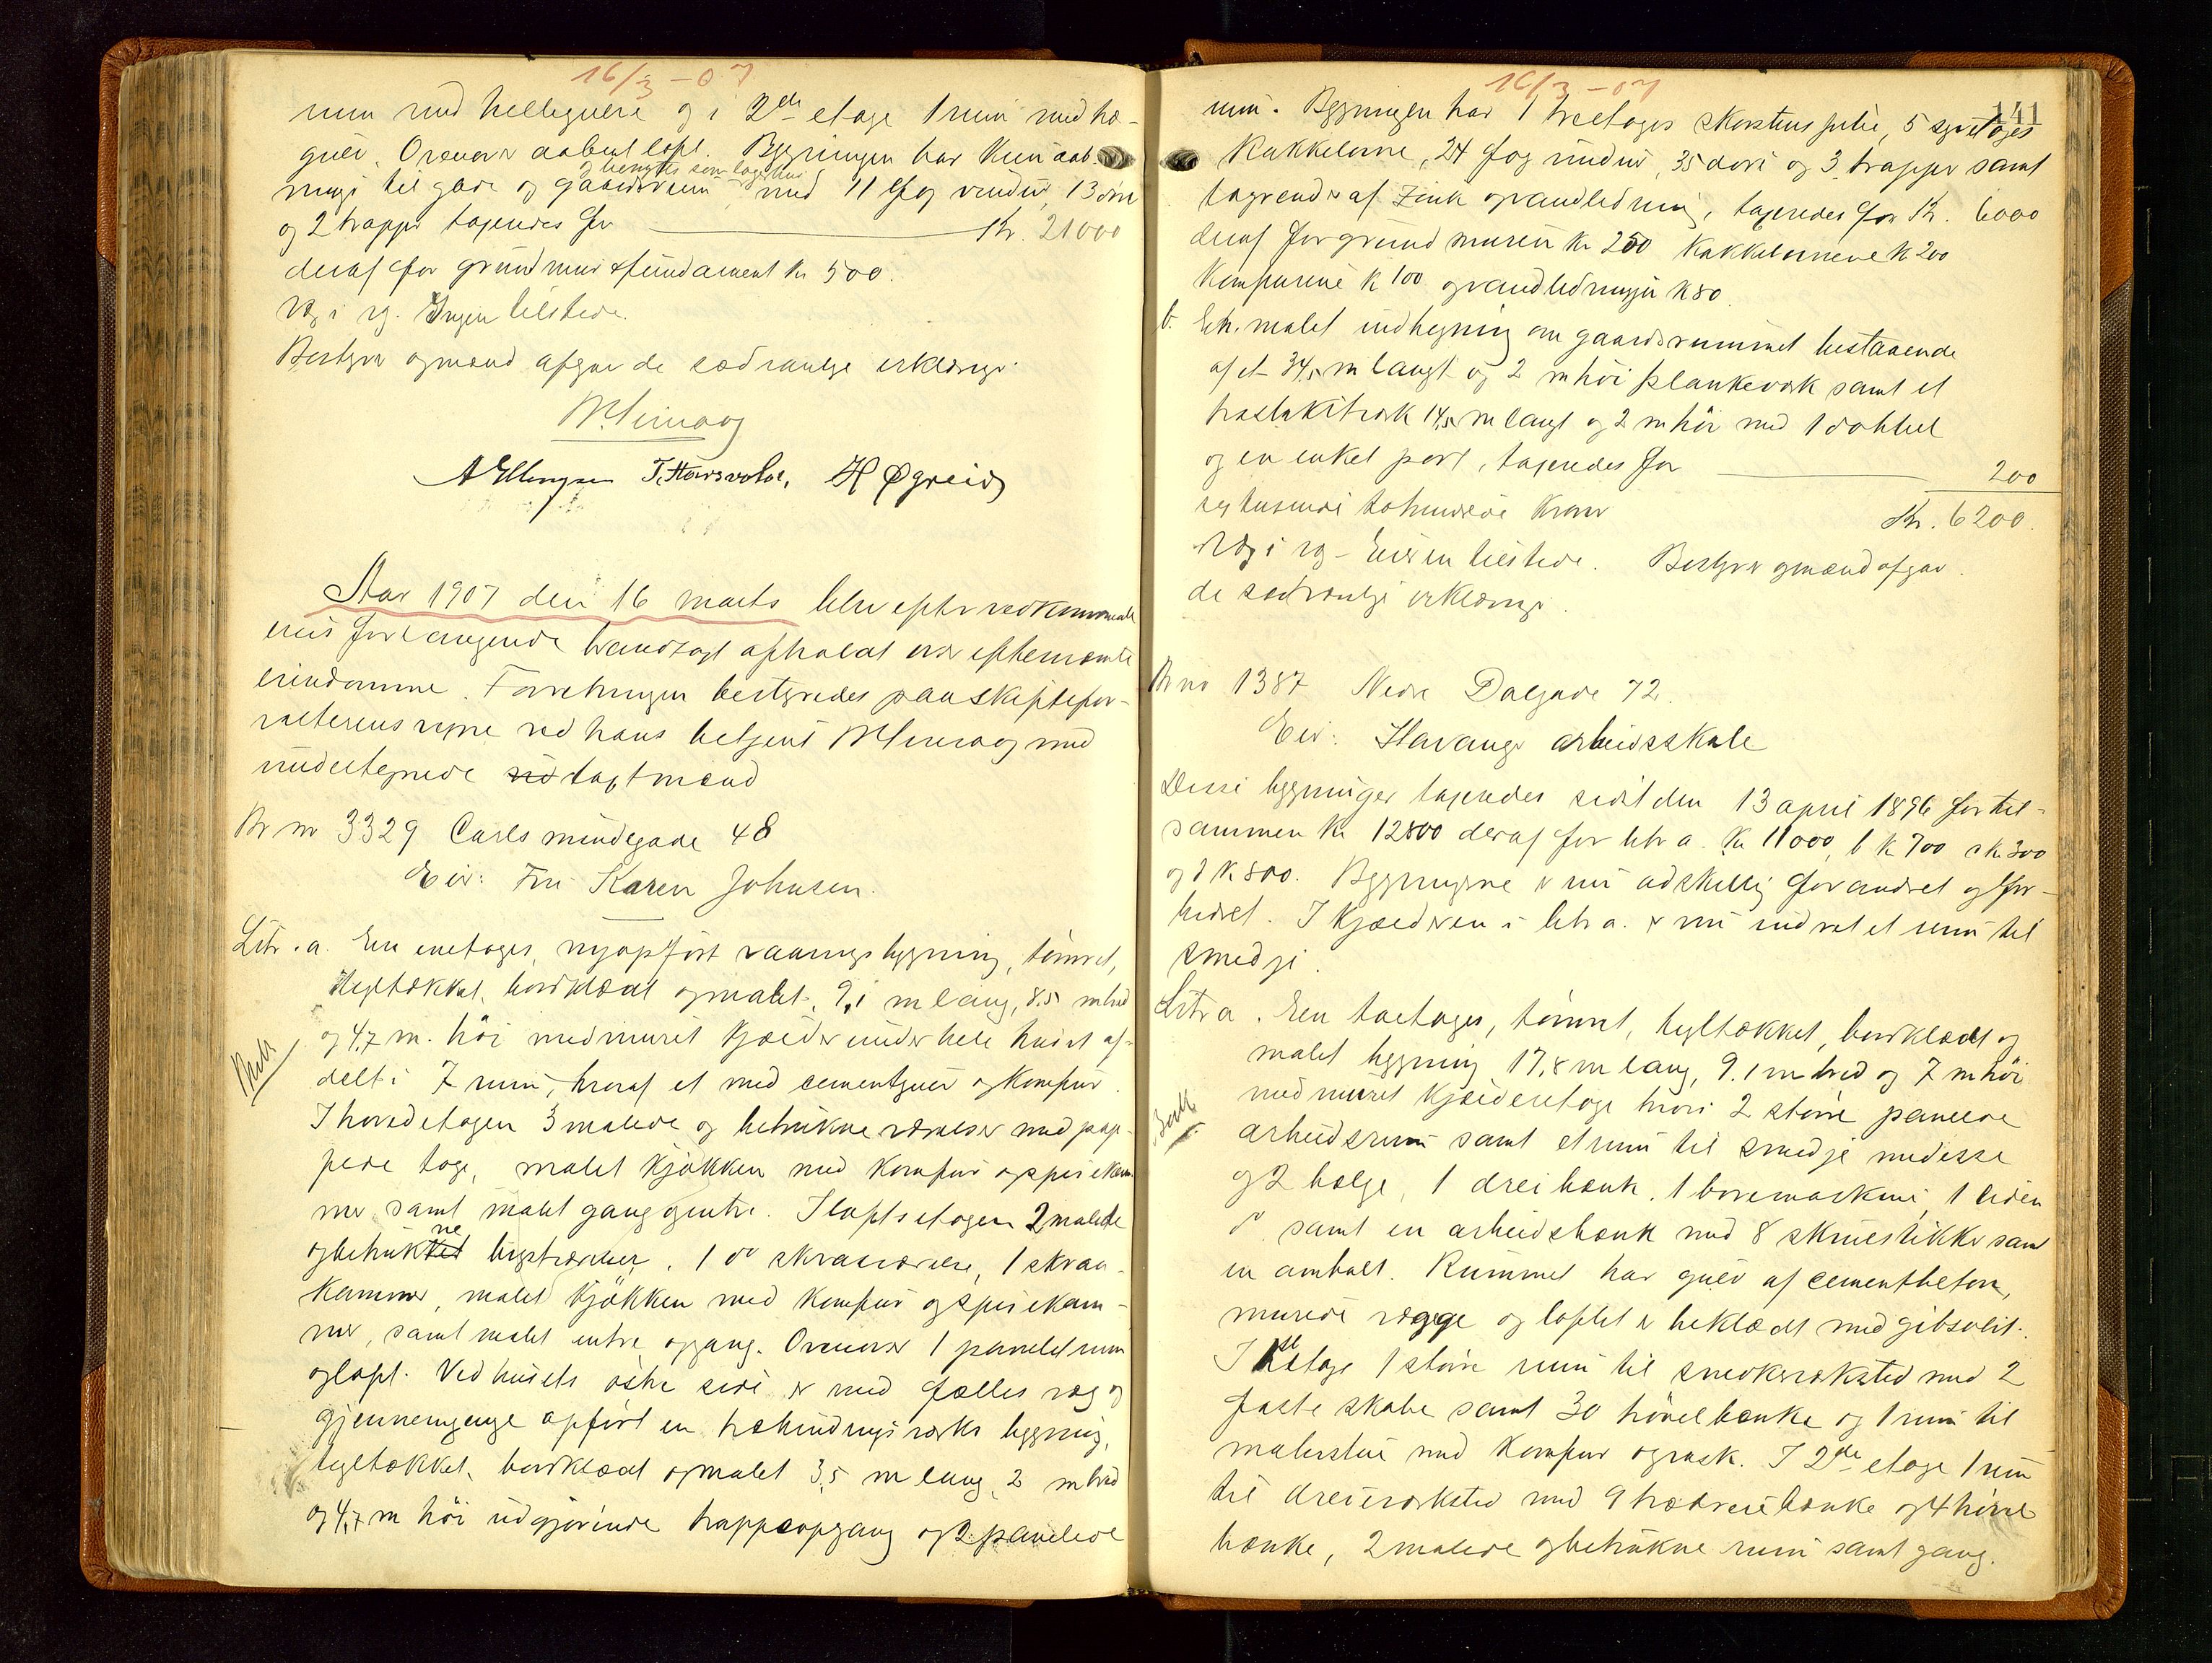 16/3-07
rum med hellegulve og i 2den etage 1 rum med træ-
gulv. Ovenover aabent loft. Bygningen har kun aab-
og benyttes som
ninger til gade og gaardsrum med 11 fag vinduer, 13 døre
og 2 trapper taxeredes for Kr. 21000
deraf for grundmur & fundament kr 500.
Vg i rg. Ingen tilstede.
Bestyrer og mænd afgav de sædvanlige erklæringer.
A Ellingsen T. Hausvold, H Øgreid
Aar 1907 den 16 marts blev efter vedkommende
eiers forlangende brandtaxt afholdt over efternævnte
eiendomme. Forretningen bestyredes paa skiftefor-
valterens vegne ved hans betjent med
undertegnede taxtmænd
Br no 3329 Carls mindegade 48
Eier: Fru Karen Johnsen.
Litr. a. En enetages, nyopført vaaningsbygning, tømret,
tegltækket, bordklædt og malet, 9,1 m lang, 8,5 m bred
og 4,7 m. høi med muret kjælder under hele huset af-
delt i 7 rum, hvoraf et med cementgulv og komfur.
I hovedetagen 3 malede og betrukne værelser med pap-
pede tage, malet kjøkken med komfur og spisekam-
mer samt malet gang og entre. I loftsetagen 2 malede
og betrukne kvistværelser, 1 do skraaværelse, 1 skraa-
kammer, malet kjøkken med komfur og spisekam-
mer, samt malet entre og gang. Ovenover 1 panelet rum
og loft. Ved husets østre side er med fælles væg og
gjennemgange opført en træbindingsværks bygning,
tegltækket, bordklædt og malet 3,5 m lang, 2 m bred
og 4,7 m høi udgjørende trappeopgang og 2 panelede
16/3-07
141
rum. Bygningen har 1 treetages skorstenspibe, 5
Kakkelovne, 24 fag vinduer, 35 døre og 3 trapper samt
tagrender af Zink og vandledning, taxeredes for Kr. 6000
deraf for grundmuren kr 250 Kakkelovnene kr 200
Komfurene kr 100 og vandledningen kr 80.
b. Et malet indhegning om gaardsrummet bestaaende
af et 34,5 m langt og 2 m høi plankeverk samt et
træstakitværk 14,5 m langt og 2 m høi med 1 dobbel
og en enkel port, taxeredes for 200
sex tusende tohundrede Kroner Kr. 6200.
Vg i rg - Eieren tilstede. Bestyrer og mænd afgav
de sædvanlige erklæringer.
Br no 1387 Nedre Dalgade 72.
Eier: Stavanger arbeidsskole
Disse bygninger taxeredes sidst den 13 april 1896 for til-
sammen kr 12800 deraf for litr a. kr 11000, b kr 700 c kr 300
og d kr 800. Bygningerne er nu adskillig forandret og for-
bedret. I kjælderen i litr a. er nu indredet et rum til
smedje.
Litr a. En toetages, tømret, tegltækket, bordklædt og
malet bygning 17,8 m lang, 9.1 m bred og 7 m høi
med muret kjælderetage hvori 2 større panelede
arbeidsrum samt et rum til smedje med esse
og 2 bælge, 1 dreibænk, 1 boremaskine, 1 liden
do samt en arbeidsbænk med 8 skruestikker samt
en ambolt. Rummet har gulv af cementbeton,
murede vægge og loftet er beklædt med gibsolit.
I 1ste etage 1 større rum til snedkerværksted med 2
faste skabe samt 30 høvelbænke og 1 rum til
malerstue med komfur og vask. I 2den etage 1 rum
til dreierværksted med 9 trædreiebænke og 4 høvel-
bænke, 2 malede og betrukne rum samt gang.